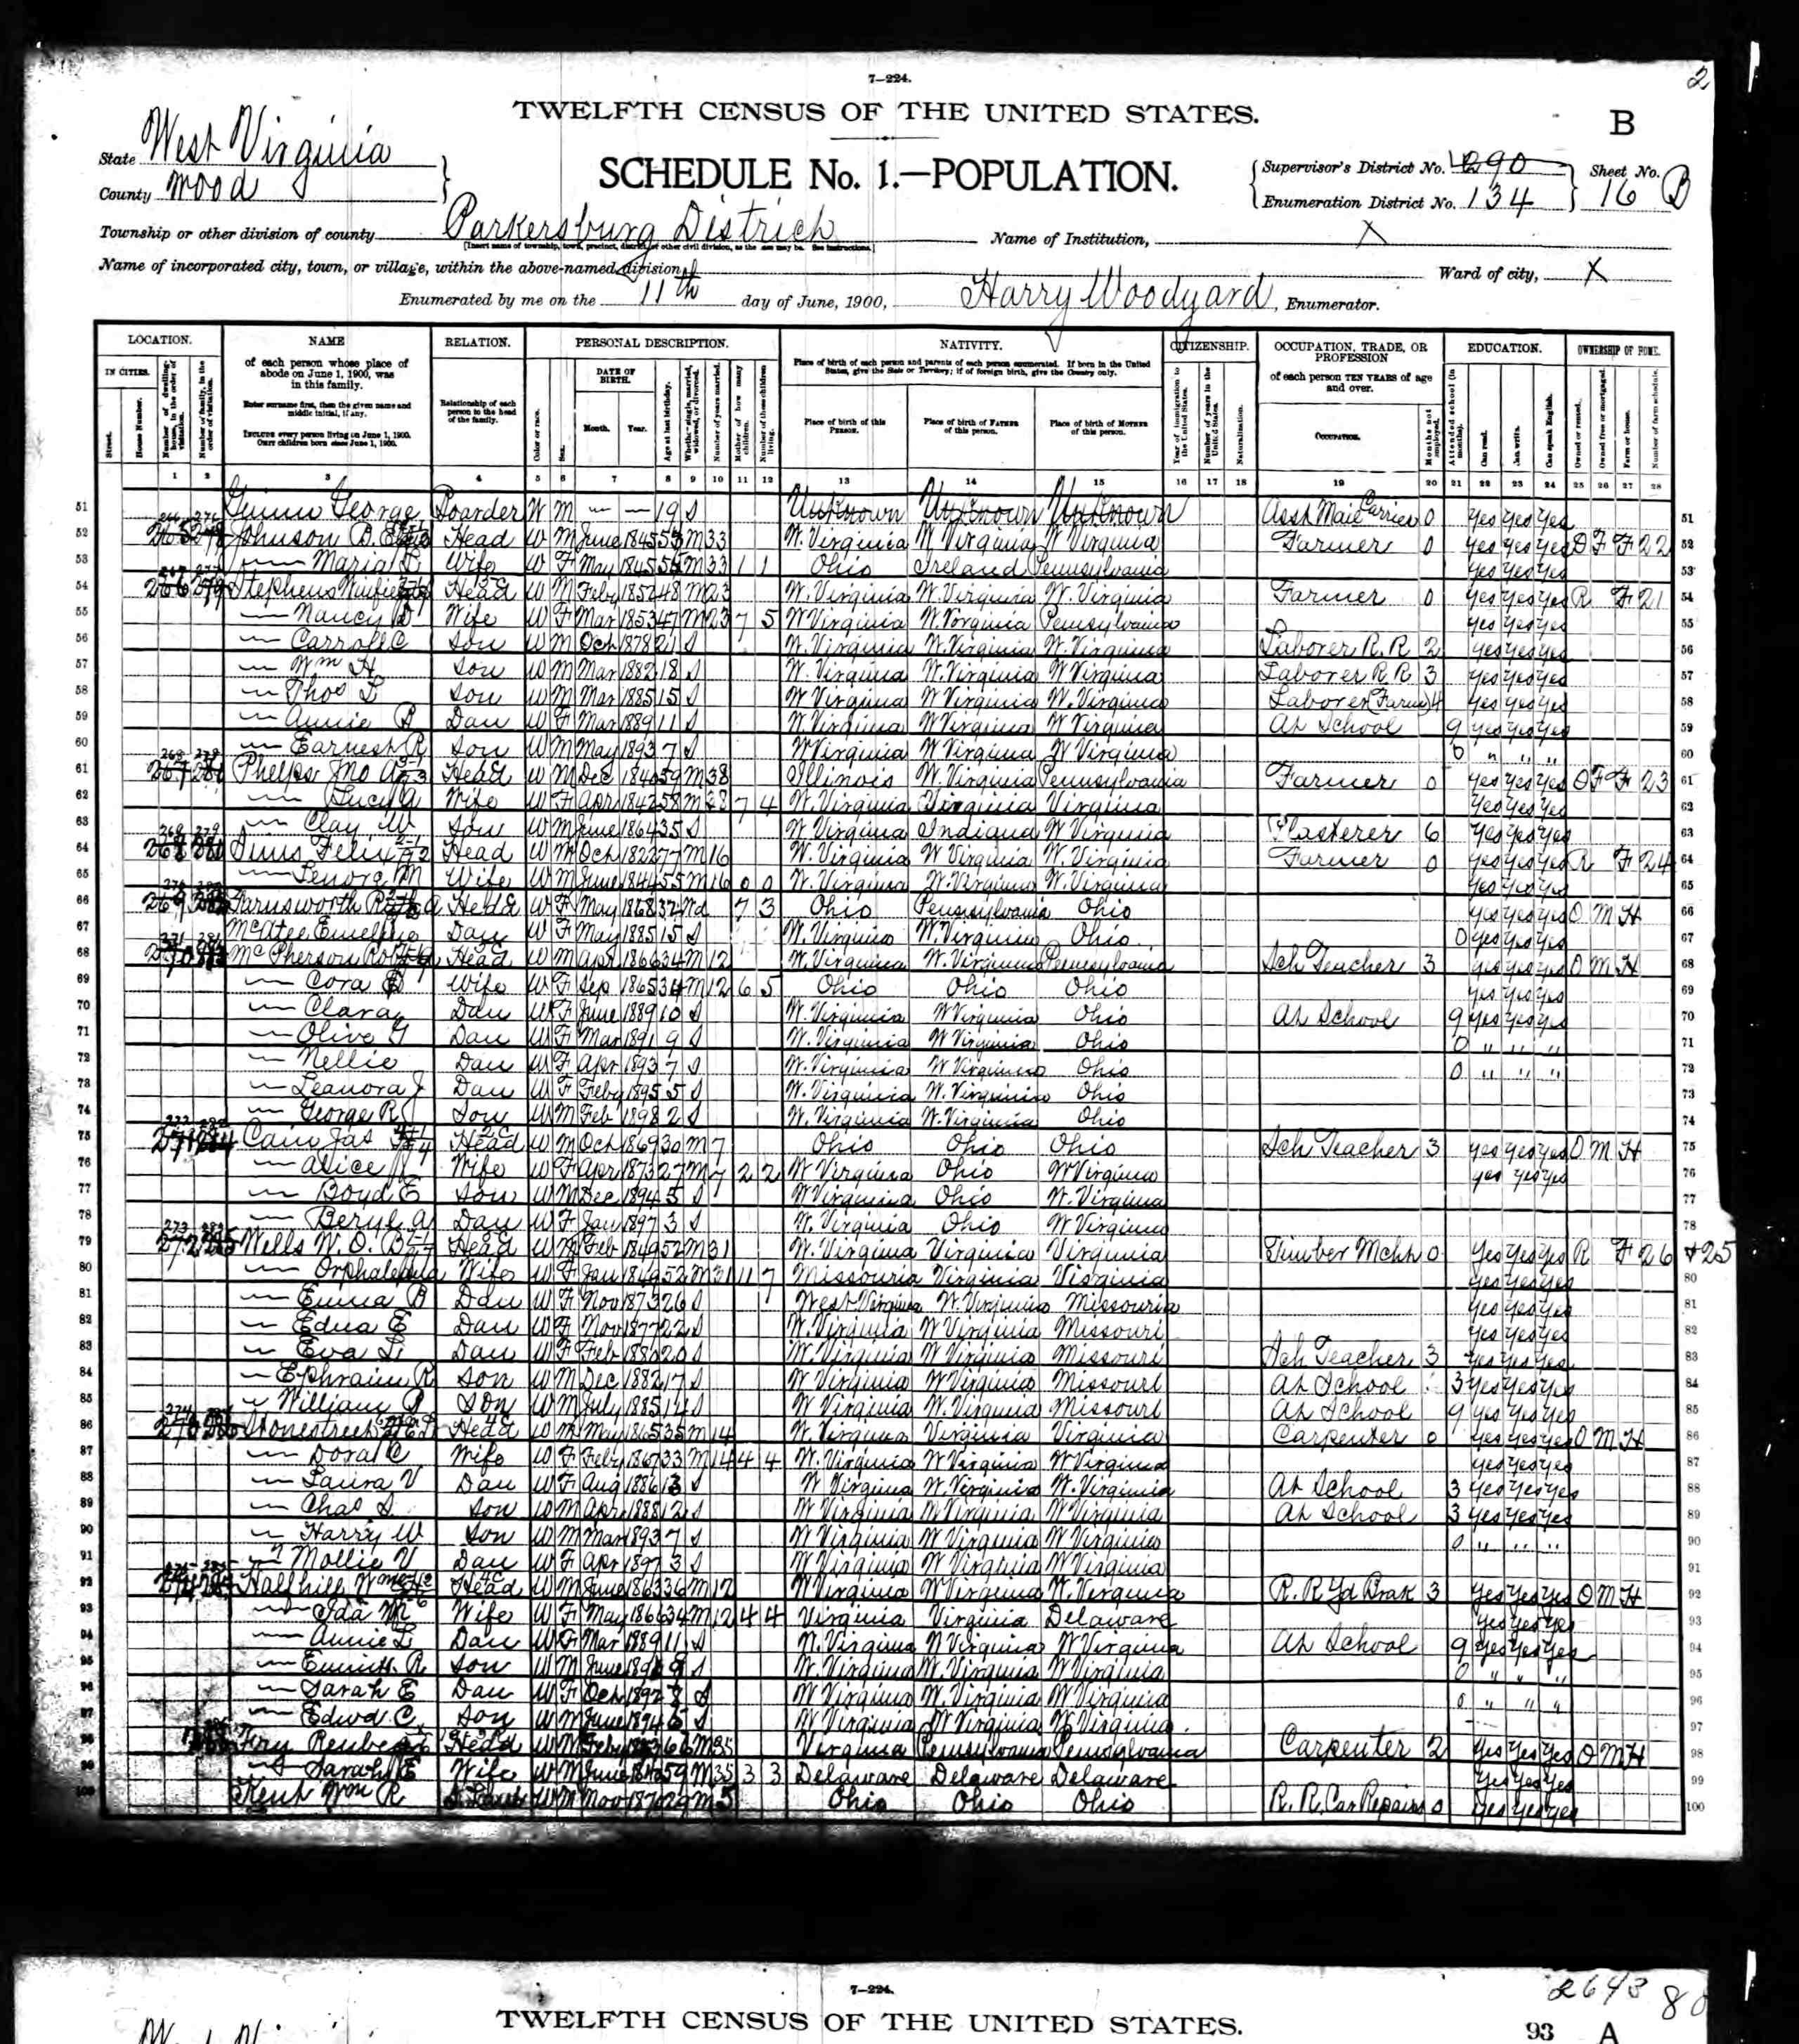 7—224.
2
TWELFTH CENSUS OF THE UNITED STATES.
B
State West Virginia
County Wood
SCHEDULE No. 1.—POPULATION.
Supervisor's District No. 290
Enumeration District No. 134
Sheet No. 16 B
Township or other division of county Parkersburg District
Name of Institution, X
Name of incorporated city, town, or village, within the above-named division,
Ward of city, X
Enumerated by me on the 11th day of June, 1900, Harry Woodyard, Enumerator.
LOCATION. NAME RELATION. PERSONAL DESCRIPTION. NATIVITY. CITIZENSHIP. OCCUPATION, TRADE, OR PROFESSION EDUCATION. OWNERSHIP OF HOME.
IN CITIES. of each person whose place of abode on June 1, 1900, was in this family.
Enter surname first, then the given name and middle initial, if any.
INCLUDE every person living on June 1, 1900.
OMIT children born since June 1, 1900.
Relationship of each person to the head of the family.
DATE OF BIRTH. Month. Year.
Place of birth of each person and parents of each person enumerated. If born in the United States, give the State or Territory; if of foreign birth, give the Country only.
Place of birth of this PERSON. Place of birth of FATHER of this person. Place of birth of MOTHER of this person.
of each person TEN YEARS of age and over.
OCCUPATION.
1 2 3 4 5 6 7 8 9 10 11 12 13 14 15 16 17 18 19 20 21 22 23 24 25 26 27 28
51 George Boarder W M — — 19 S Unknown Unknown Unknown Asst Mail Carrier 0 yes yes yes 51
52 Johnson B. Head W M June 1845 M 33 W. Virginia W Virginia W Virginia Farmer 0 yes yes yes O F F 22 52
53 — Maria L Wife W F May 1845 M 33 1 1 Ohio Ireland Pennsylvania yes yes yes 53
54 Stephens Head W M Feby 1852 48 M 23 W. Virginia W. Virginia W. Virginia Farmer 0 yes yes yes R F 21 54
55 — Nancy Wife W F Mar 1853 47 M 23 7 5 W Virginia W. Virginia Pennsylvania yes yes yes 55
56 — Carroll C Son W M Oct 1878 21 S W. Virginia W. Virginia W. Virginia Laborer R. R 2 yes yes yes 56
57 — Wm H Son W M Mar 1882 18 S W. Virginia W. Virginia W Virginia Laborer R R 3 yes yes yes 57
58 — Thos L Son W M Mar 1885 15 S W Virginia W Virginia W. Virginia Laborer (Farm) 4 yes yes yes 58
59 — Annie Dau W F Mar 1889 11 S W Virginia W Virginia W Virginia At School 9 yes yes yes 59
60 — Earnest R Son W M May 1893 7 S W Virginia W Virginia W Virginia 0 " " " 60
61 Phelps Jno A Head W M Dec 1840 59 M 38 Illinois W. Virginia Pennsylvania Farmer 0 yes yes yes O F F 23 61
62 — Lucy A Wife W F Apr 1842 58 M 38 7 4 W. Virginia Virginia Virginia yes yes yes 62
63 — Clay W Son W M June 1864 35 S W Virginia Indiana W Virginia Plasterer 6 yes yes yes 63
64 Sims Felix Head W M Oct 1822 77 M 16 W. Virginia W Virginia W. Virginia Farmer 0 yes yes yes R F 24 64
65 — Lenora M Wife W M June 1844 55 M 16 0 0 W. Virginia W. Virginia W. Virginia yes yes yes 65
66 Farnsworth Head W F May 1868 32 Wd 7 3 Ohio Pennsylvania Ohio yes yes yes O M H 66
67 McAtee Dau W F May 1885 15 S W. Virginia W. Virginia Ohio 0 yes yes yes 67
68 McPherson Robt Head W M Apr 1866 34 M 12 W. Virginia W. Virginia Pennsylvania Sch Teacher 3 yes yes yes O M H 68
69 — Cora Wife W F Sep 1865 34 M 12 6 5 Ohio Ohio Ohio yes yes yes 69
70 — Clara Dau W F June 1889 10 S W. Virginia W Virginia Ohio At School 9 yes yes yes 70
71 — Olive Dau W F Mar 1891 9 S W. Virginia W Virginia Ohio 0 " " " 71
72 — Nellie Dau W F Apr 1893 7 S W. Virginia W Virginia Ohio 0 " " " 72
73 — Leanora J Dau W F Feby 1895 5 S W. Virginia W. Virginia Ohio 73
74 — George R Son W M Feb 1898 2 S W. Virginia W. Virginia Ohio 74
75 Cain Jas Head W M Oct 1869 30 M 7 Ohio Ohio Ohio Sch Teacher 3 yes yes yes O M H 75
76 — Alice Wife W F Apr 1873 27 M 7 2 2 W Virginia Ohio W Virginia yes yes yes 76
77 — Boyd E Son W M Dec 1894 5 S W Virginia Ohio W. Virginia 77
78 — Beryl A Dau W F Jan 1897 3 S W. Virginia Ohio W Virginia 78
79 Wells W. O. B Head W M Feb 1849 52 M 31 W. Virginia Virginia Virginia Timber Mcht 0 yes yes yes R F 26 +25
80 — Wife W F Jan 1849 52 M 31 11 7 Missouria Virginia Virginia yes yes yes 80
81 — Emma B Dau W F Nov 1873 26 S West Virginia W. Virginia Missouria yes yes yes 81
82 — Edna E Dau W F Nov 1877 22 S W. Virginia W Virginia Missouri yes yes yes 82
83 — Eva L Dau W F Feb 1880 20 S W Virginia W Virginia Missouri Sch Teacher 3 yes yes yes 83
84 — Ephraim R Son W M Dec 1882 17 S W Virginia W Virginia Missouri At School 3 yes yes yes 84
85 — William Son W M July 1885 14 S W Virginia W. Virginia Missouri At School 9 yes yes yes 85
86 Stonestreet Head W M May 1865 35 M 14 W. Virginia Virginia Virginia Carpenter 0 yes yes yes O M H 86
87 — Dora C Wife W F Feby 1867 33 M 14 4 4 W. Virginia W Virginia W Virginia yes yes yes 87
88 — Laura V Dau W F Aug 1886 13 S W Virginia W. Virginia W. Virginia At School 3 yes yes yes 88
89 — Chas S Son W M Apr 1888 12 S W Virginia W Virginia W Virginia At School 3 yes yes yes 89
90 — Harry W Son W M Mar 1893 7 S W Virginia W Virginia W Virginia 0 " " " 90
91 — Mollie V Dau W F Apr 1897 3 S W Virginia W Virginia W Virginia 91
92 Halfhill Wm Head W M June 1863 36 M 12 W Virginia W Virginia W. Virginia R. R Yd Brak 3 yes yes yes O M H 92
93 — Ida M Wife W F May 1866 34 M 12 4 4 Virginia Virginia Delaware yes yes yes 93
94 — Annie L Dau W F Mar 1889 11 S W. Virginia W Virginia W Virginia At School 9 yes yes yes 94
95 — R Son W M June S W. Virginia W. Virginia W Virginia 0 " " " 95
96 — Sarah E Dau W F Oct 1892 S W Virginia W. Virginia W Virginia 0 " " " 96
97 — Edwd C Son W M June 1894 S W Virginia W Virginia W Virginia 97
98 Reuben Head W M Feby M 35 Virginia Pennsylvania Pennsylvania Carpenter 2 yes yes yes O M H 98
99 — Sarah E Wife W M June 1840 59 M 35 3 3 Delaware Delaware Delaware yes yes yes 99
100 Kent Wm R W M Nov 1870 29 M 5 Ohio Ohio Ohio R. R. Car Repairs 0 yes yes yes 100
7—224.
2643 80
TWELFTH CENSUS OF THE UNITED STATES.
93 A